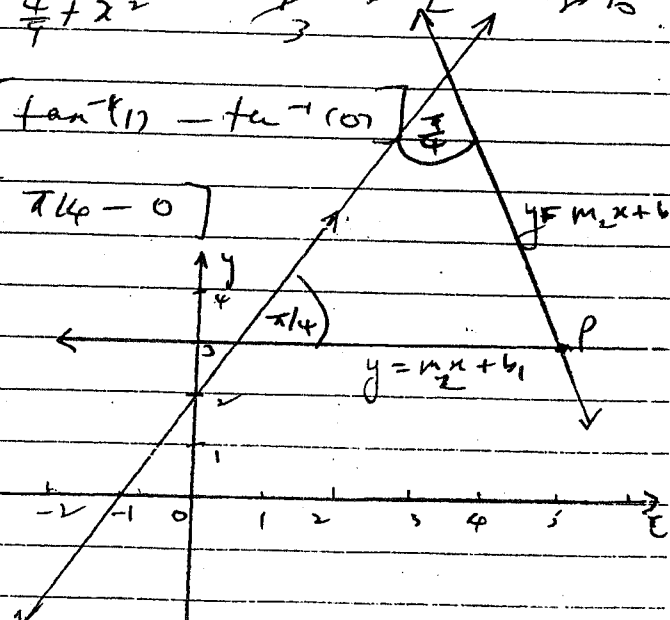 4/4 + x²
3
tan⁻¹(1) – tan⁻¹(0)
π/4
π/4 – 0
y = m₂x + b
y
4
π/4
3
P
y = m₂x + b₁
2
1
-2 -1 0 1 2 3 4 5